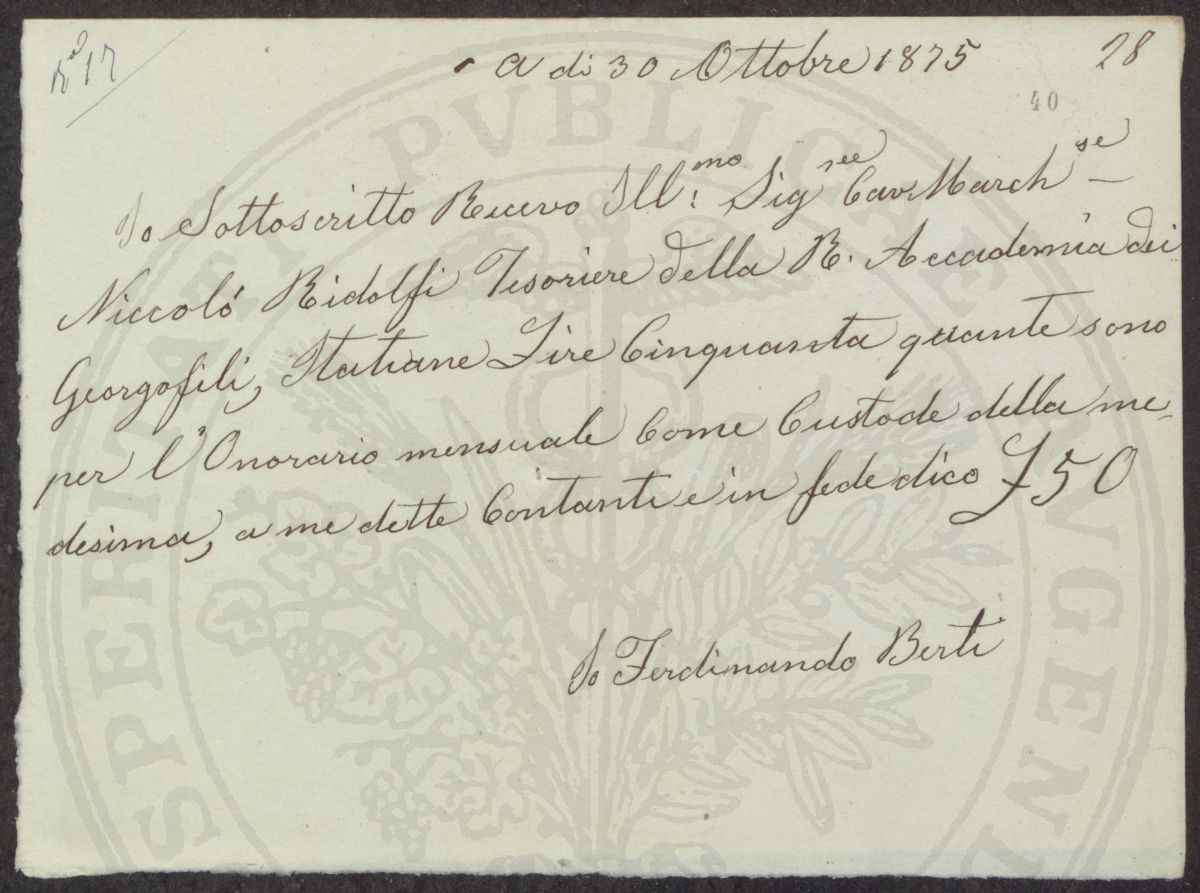 Rª 17
a di 30 Ottobre 1875
28
40
Io Sottoscritto Ricevo Ill:mo Sigree Cav. Marchse
Niccoló Ridolfi Tesoriere della R. Accademia dei
Georgofili, Italiane Lire Cinquanta quante sono
per l'Onorario mensuale Come Custode della me-
desima, a me dette Contanti e in fede dico £50
Io Ferdinando Berti
PROSPERITATI PVBLICAE AVGENDAE